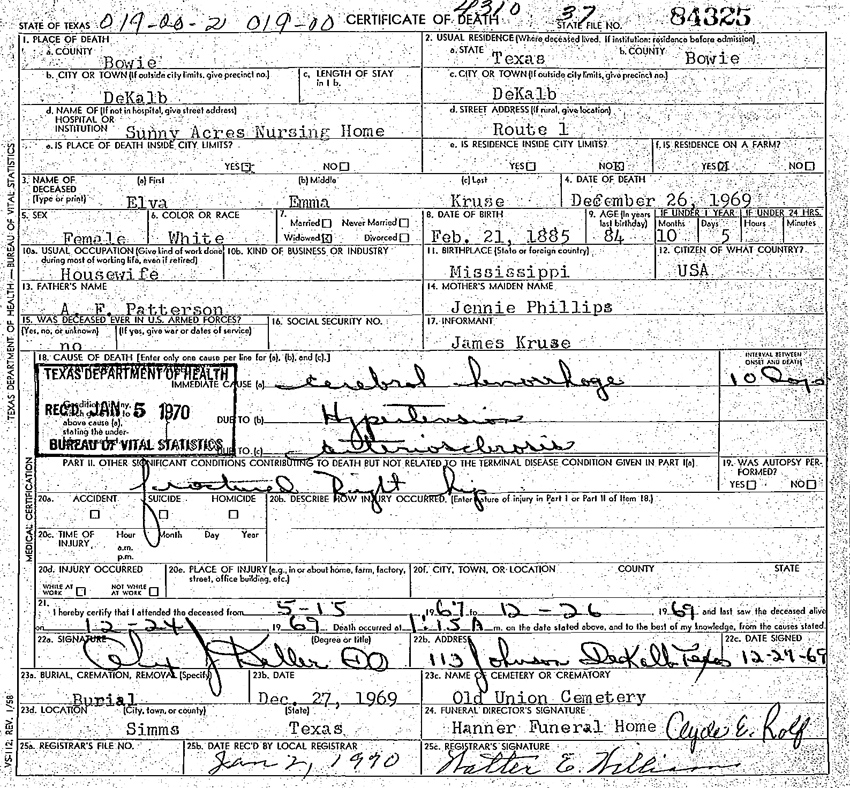 4310
STATE OF TEXAS 019-00-2 019-00 CERTIFICATE OF DEATH 37 STATE FILE NO. 84325
TEXAS DEPARTMENT OF HEALTH — BUREAU OF VITAL STATISTICS
1. PLACE OF DEATH
a. COUNTY
Bowie
2. USUAL RESIDENCE (Where deceased lived. If institution: residence before admission)
a. STATE b. COUNTY
Texas Bowie
b. CITY OR TOWN (If outside city limits, give precinct no.)
DeKalb
c. LENGTH OF STAY
in 1 b.
c. CITY OR TOWN (If outside city limits, give precinct no.)
DeKalb
d. NAME OF (If not in hospital, give street address)
HOSPITAL OR
INSTITUTION Sunny Acres Nursing Home
d. STREET ADDRESS (If rural, give location)
Route 1
e. IS PLACE OF DEATH INSIDE CITY LIMITS?
YES NO
e. IS RESIDENCE INSIDE CITY LIMITS?
YES NO X
f. IS RESIDENCE ON A FARM?
YES X NO
3. NAME OF DECEASED (Type or print)
(a) First (b) Middle (c) Last
Elva Emma Kruse
4. DATE OF DEATH
December 26, 1969
5. SEX
Female
6. COLOR OR RACE
White
7.
Married Never Married
Widowed X Divorced
8. DATE OF BIRTH
Feb. 21, 1885
9. AGE (In years last birthday)
84
IF UNDER 1 YEAR IF UNDER 24 HRS.
Months Days Hours Minutes
10 5
10a. USUAL OCCUPATION (Give kind of work done
during most of working life, even if retired)
Housewife
10b. KIND OF BUSINESS OR INDUSTRY
11. BIRTHPLACE (State or foreign country)
Mississippi
12. CITIZEN OF WHAT COUNTRY?
USA
13. FATHER'S NAME
A. F. Patterson
14. MOTHER'S MAIDEN NAME
Jennie Phillips
15. WAS DECEASED EVER IN U.S. ARMED FORCES?
(Yes, no, or unknown) (If yes, give war or dates of service)
no
16. SOCIAL SECURITY NO.
17. INFORMANT
James Kruse
MEDICAL CERTIFICATION
18. CAUSE OF DEATH [Enter only one cause per line for (a), (b), and (c).]
INTERVAL BETWEEN
ONSET AND DEATH
TEXAS DEPARTMENT OF HEALTH
REC'D JAN 5 1970
BUREAU OF VITAL STATISTICS
IMMEDIATE CAUSE (a) cerebral hemorrhage 10 Days
Conditions, if any,
which gave rise to
above cause (a),
stating the under-
DUE TO (b) Hypertension
DUE TO (c) arteriosclerosis
PART II. OTHER SIGNIFICANT CONDITIONS CONTRIBUTING TO DEATH BUT NOT RELATED TO THE TERMINAL DISEASE CONDITION GIVEN IN PART I(a).
fractured Right hip
19. WAS AUTOPSY PER-
FORMED?
YES NO
20a. ACCIDENT SUICIDE HOMICIDE
20b. DESCRIBE HOW INJURY OCCURRED. (Enter nature of injury in Part I or Part II of Item 18.)
20c. TIME OF
INJURY
Hour Month Day Year
a.m.
p.m.
20d. INJURY OCCURRED
WHILE AT WORK NOT WHILE AT WORK
20e. PLACE OF INJURY (e.g., in or about home, farm, factory,
street, office building, etc.)
20f. CITY, TOWN, OR LOCATION COUNTY STATE
21.
I hereby certify that I attended the deceased from 5-15 1967 to 12-26, 1969 and last saw the deceased alive
on 12-24 1969 Death occurred at 1:15 A m. on the date stated above, and to the best of my knowledge, from the causes stated.
22a. SIGNATURE (Degree or title)
Keller DO
22b. ADDRESS
113 Johnson DeKalb Texas
22c. DATE SIGNED
12-27-69
23a. BURIAL, CREMATION, REMOVAL (Specify)
Burial
23b. DATE
Dec. 27, 1969
23c. NAME OF CEMETERY OR CREMATORY
Old Union Cemetery
23d. LOCATION (City, town, or county) (State)
Simms Texas
24. FUNERAL DIRECTOR'S SIGNATURE
Hanner Funeral Home Clyde E. Rolf
25a. REGISTRAR'S FILE NO.
25b. DATE REC'D BY LOCAL REGISTRAR
Jan 2, 1970
25c. REGISTRAR'S SIGNATURE
Walter E. Williams
VS-112, REV. 1/58